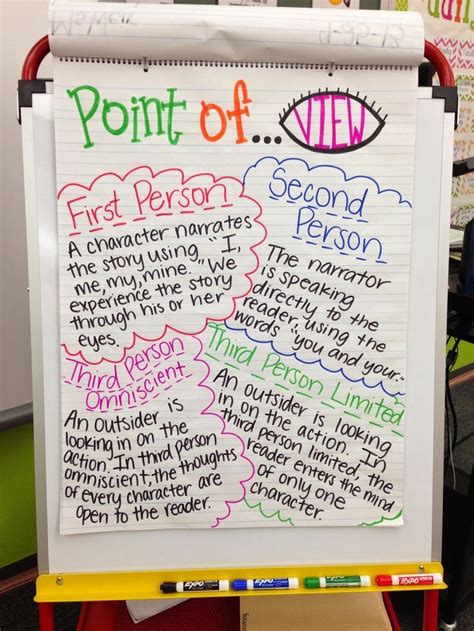 Point of... VIEW
First Person
A character narrates
the story using, "I,
me, my, mine." We
experience the story
through his or her
eyes.
Second
Person
The narrator
is speaking
directly to the
reader, using the
words "you and your."
Third Person
Omniscient
An outsider is
looking in on the
action. In third person
omniscient, the thoughts
of every character are
open to the reader.
Third Person Limited
An outsider is looking
in on the action. In
third person limited, the
reader enters the mind
of only one
character.
EXPO
EXPO
EXPO
EXPO